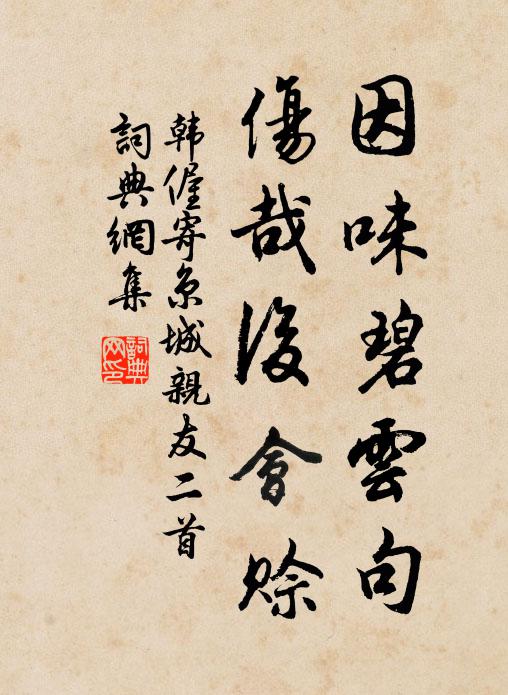 因味碧雲句
傷哉後會賒
韩偓寄京城親友二首
詞典網集
詞典網印